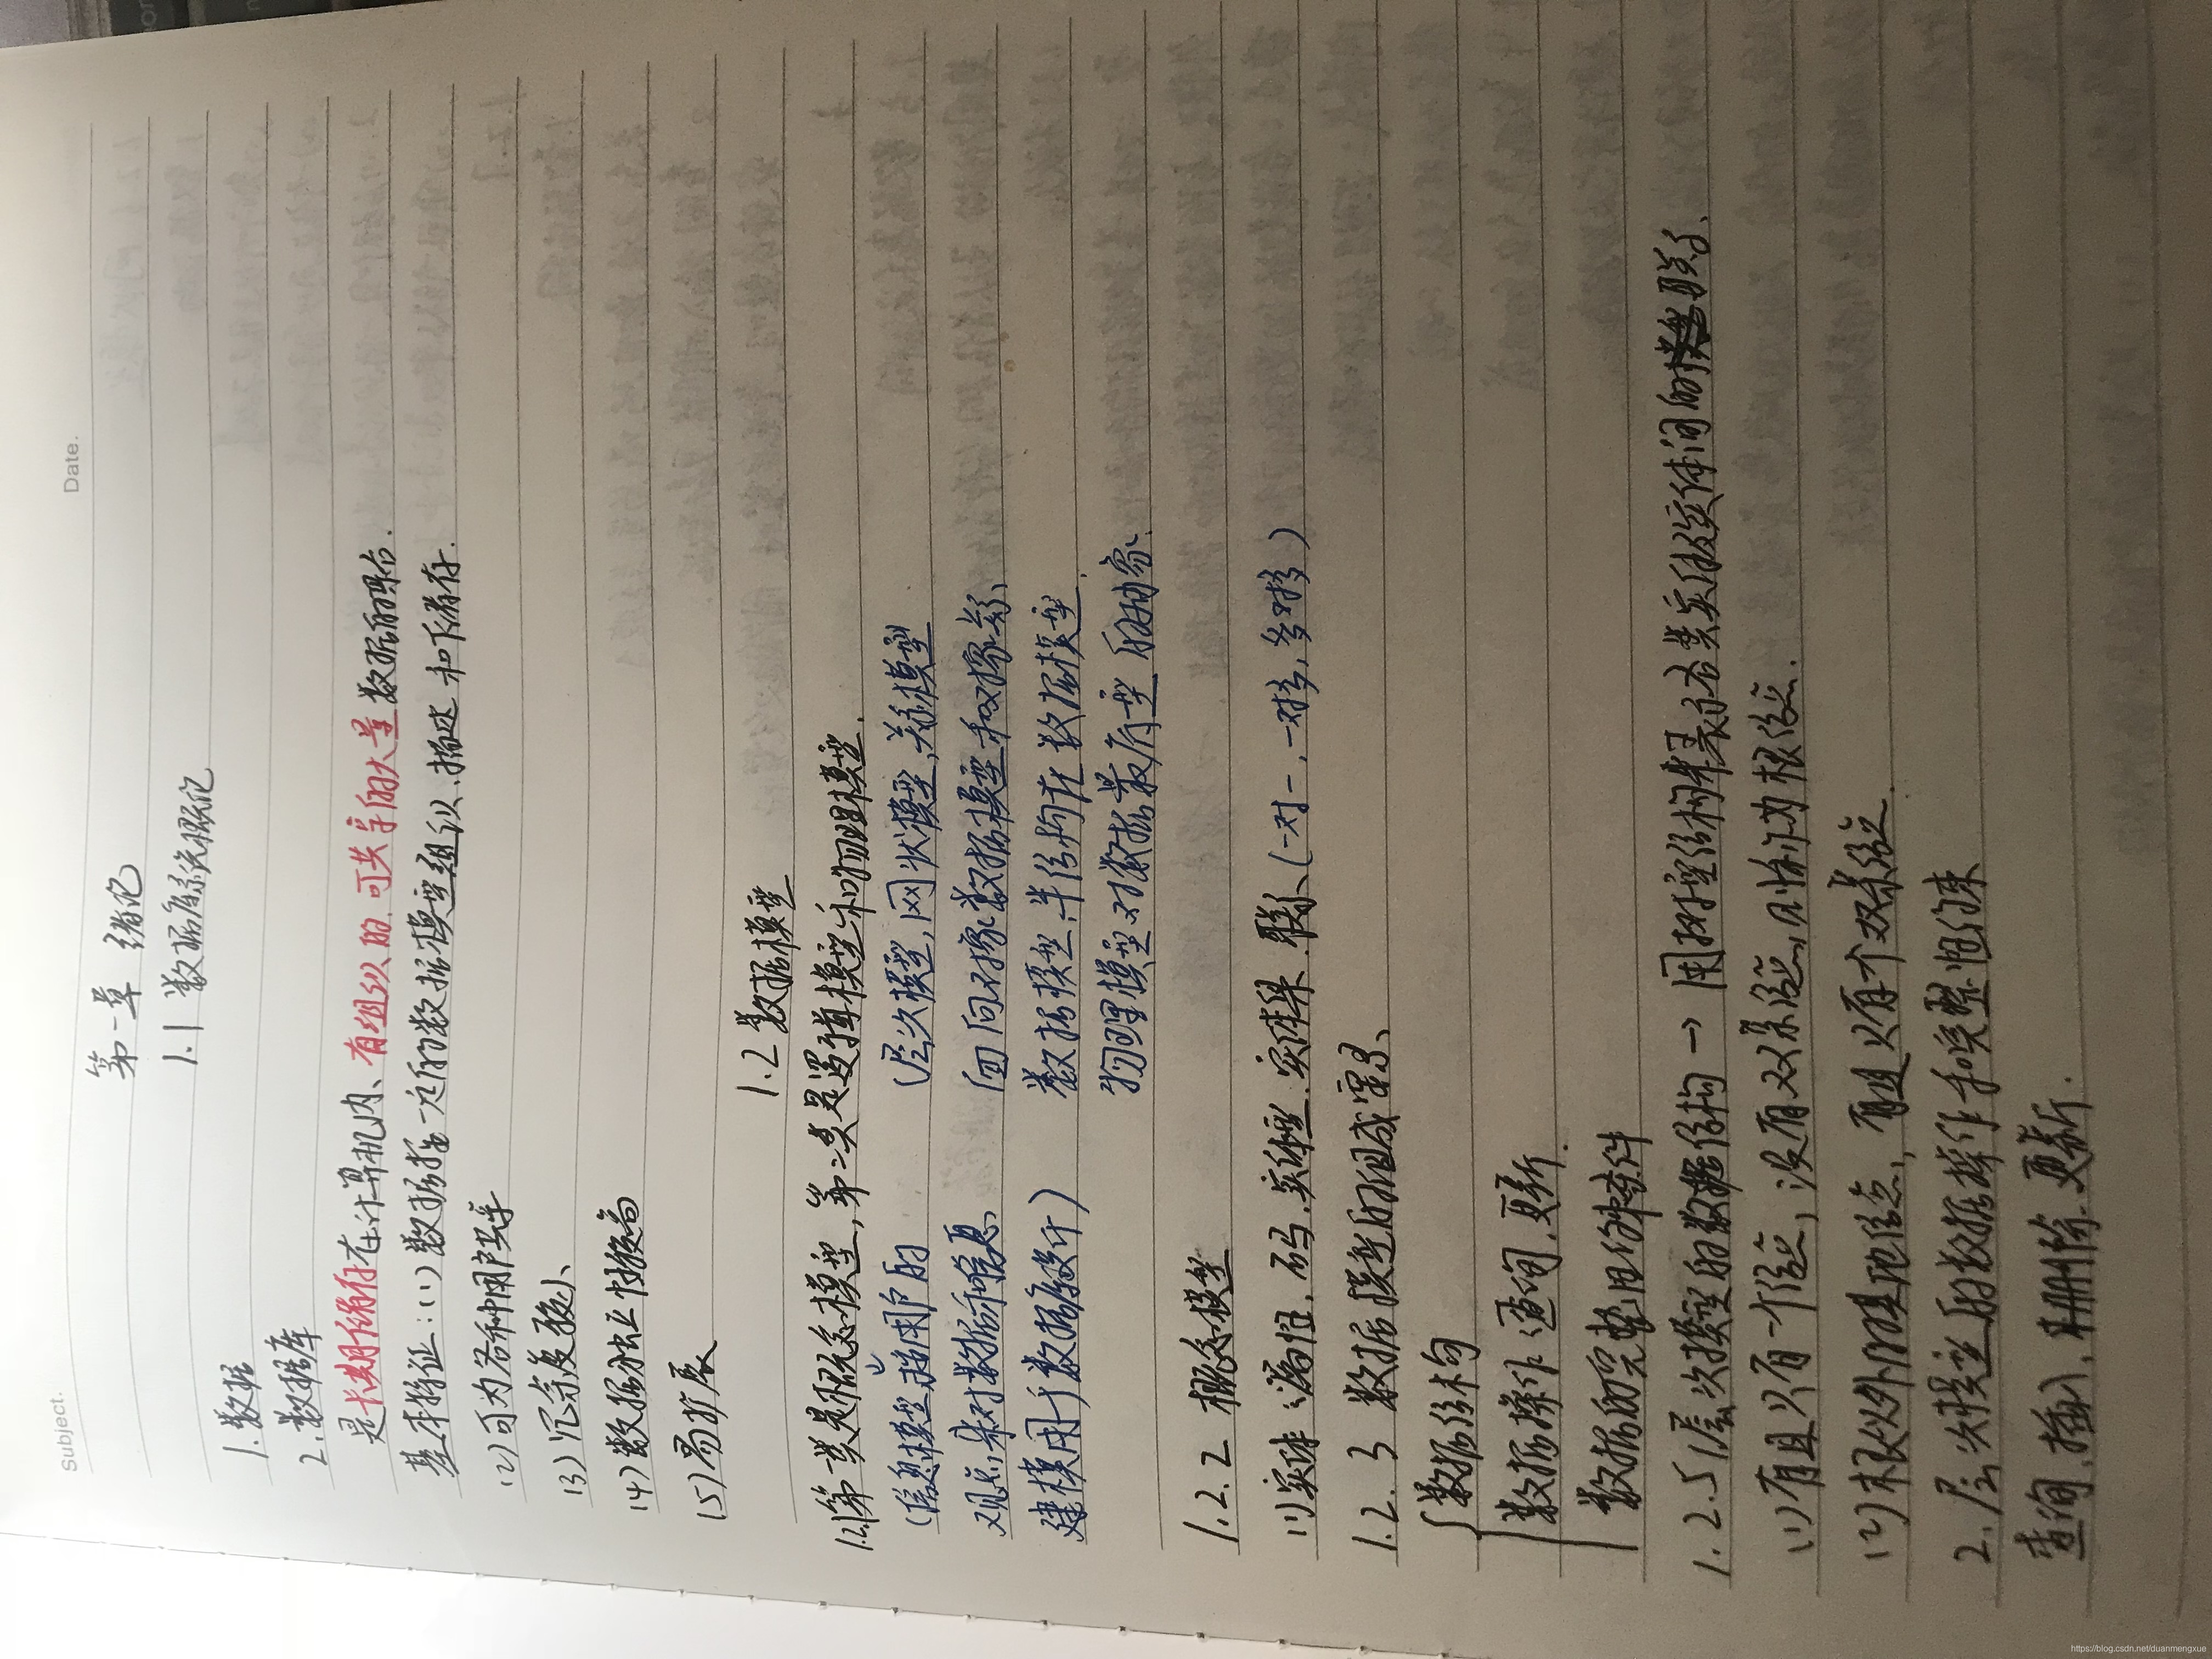 Subject.
Date.
第一章 绪论
1.1 数据库系统概论
1.数据
2.数据库
是长期储存在计算机内、有组织的、可共享的大量数据的集合.
基本特征:(1)数据按一定的数据模型组织、描述和储存.
(2)可为各种用户共享
(3)冗余度较小
(4)数据独立性较高
(5)易扩展
1.2 数据模型
1.2.1第一类是概念模型,第二类是逻辑模型和物理模型.
(信息模型 按用户的
观点来对数据和信息
建模用于数据库设计)
(层次模型,网状模型,关系模型
面向对象数据模型和对象关系
数据模型、半结构化数据模型.
物理模型对数据最底层的抽象.
1.2.2 概念模型
(1)实体、属性、码、实体型、实体集、联系(一对一,一对多,多对多)
1.2.3 数据模型的组成要素
数据结构
数据操作:查询、更新.
数据的完整性约束条件
1.2.5 1层次模型的数据结构→用树型结构来表示各类实体及实体间的联系、
(1)有且只有一个结点,没有双亲结点,则称作为根结点.
(2)根以外的其他结点,有且只有一个双亲结点.
2.层次模型的数据操作和完整性约束
查询、插入、删除、更新.
https://blog.csdn.net/duanmengxue